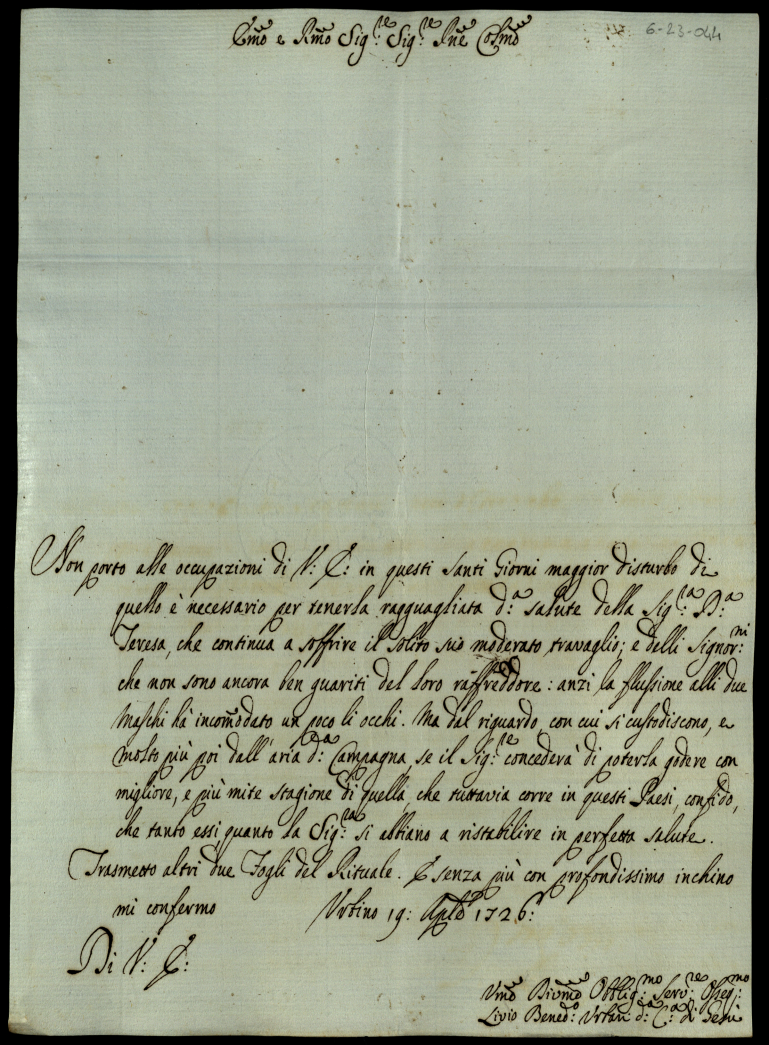 6-23-044
Em̃o e Rm̃o Sig.re Sig.re Pñe Colm̃o
Non porto alle occupazioni di V: E: in questi Santi Giorni maggior disturbo di
quello è necessario per tenerla ragguagliata d:a salute della Sig:ra D:a
Teresa, che continua a soffrire il solito suo moderato travaglio; e delli Signor:ni
che non sono ancora ben guariti del loro raffreddore: anzi la flussione alli due
Maschi hà incom̃odato un poco li occhi. Ma dal riguardo, con cui si custodiscono, e
molto più poi dall'aria d:a Campagna, se il Sig:re concederà di poterla godere con
migliore, e più mite stagione di quella, che tuttavia corre in questi Paesi, confido,
che tanto essi, quanto la Sig:ra si abbiano a ristabilire in perfetta salute.
Trasmetto altri due Fogli del Rituale. E senza più con profondissimo inchino
mi confermo Urbino 19: Aplẽ 1726:
Di V: E:
Um̃o Divm̃o Obblig:mo Serv:re Osseq:mo
Livio Bened:o Urbani d:a C:a di Gesù